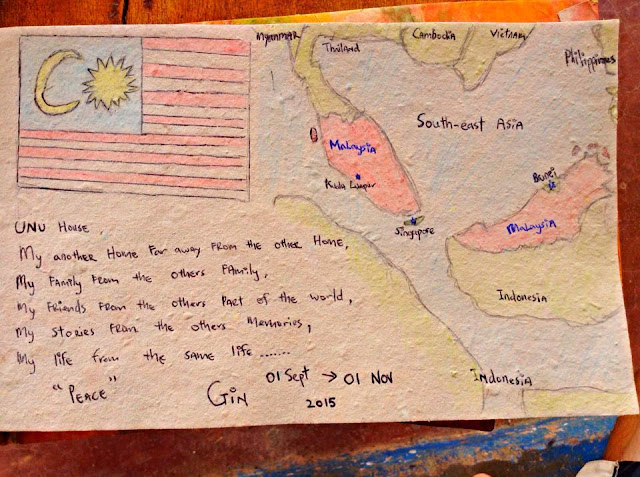 Myanmar
Thailand
Cambodia
Vietnam
Philippines
South-east Asia
Malaysia
Kuala Lumpur
Singapore
Brunei
Malaysia
Indonesia
Indonesia
UNU House
My another Home far away from the other Home,
My Family from the others Family,
My Friends from the others part of the world,
My stories from the others Memories,
My life from the same life.......
"Peace"
Gin
01 Sept → 01 Nov
2015